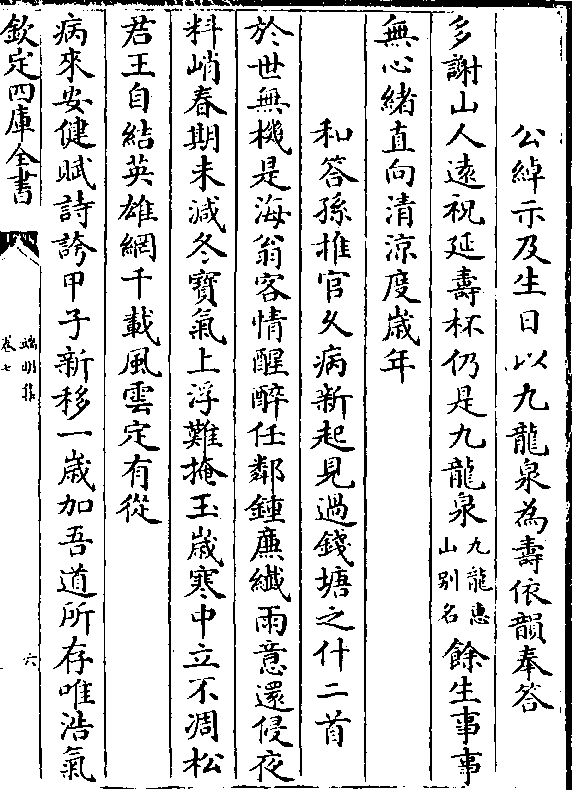 公綽示及生日以九龍泉為壽依韻奉答
多謝山人遠祝延壽杯仍是九龍泉九龍惠山别名餘生事事
無心緒直向清涼度歳年
和答孫推官久病新起見過錢塘之什二首
於世無機是海翁客情醒醉任鄰鍾廉纖雨意還侵夜
料峭春期未減冬寶氣上浮難掩玉歳寒中立不凋松
君王自結英雄網千載風雲定有從
病來安健賦詩誇甲子新移一歳加吾道所存唯浩氣
欽定四庫全書
端明集
卷七
六